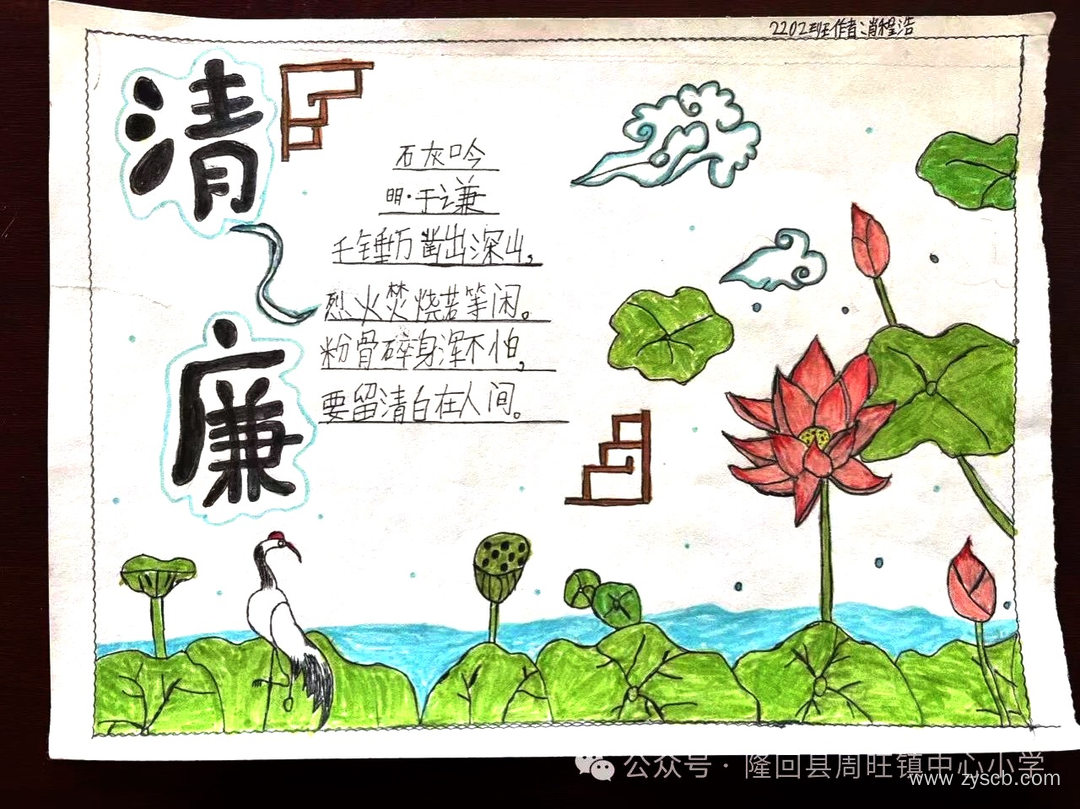 2202班作者:肖程浩
清
廉
石灰吟
明·于谦
千锤万凿出深山,
烈火焚烧若等闲。
粉骨碎身浑不怕,
要留清白在人间。
公众号·隆回县周旺镇中心小学
www.zyscb.com